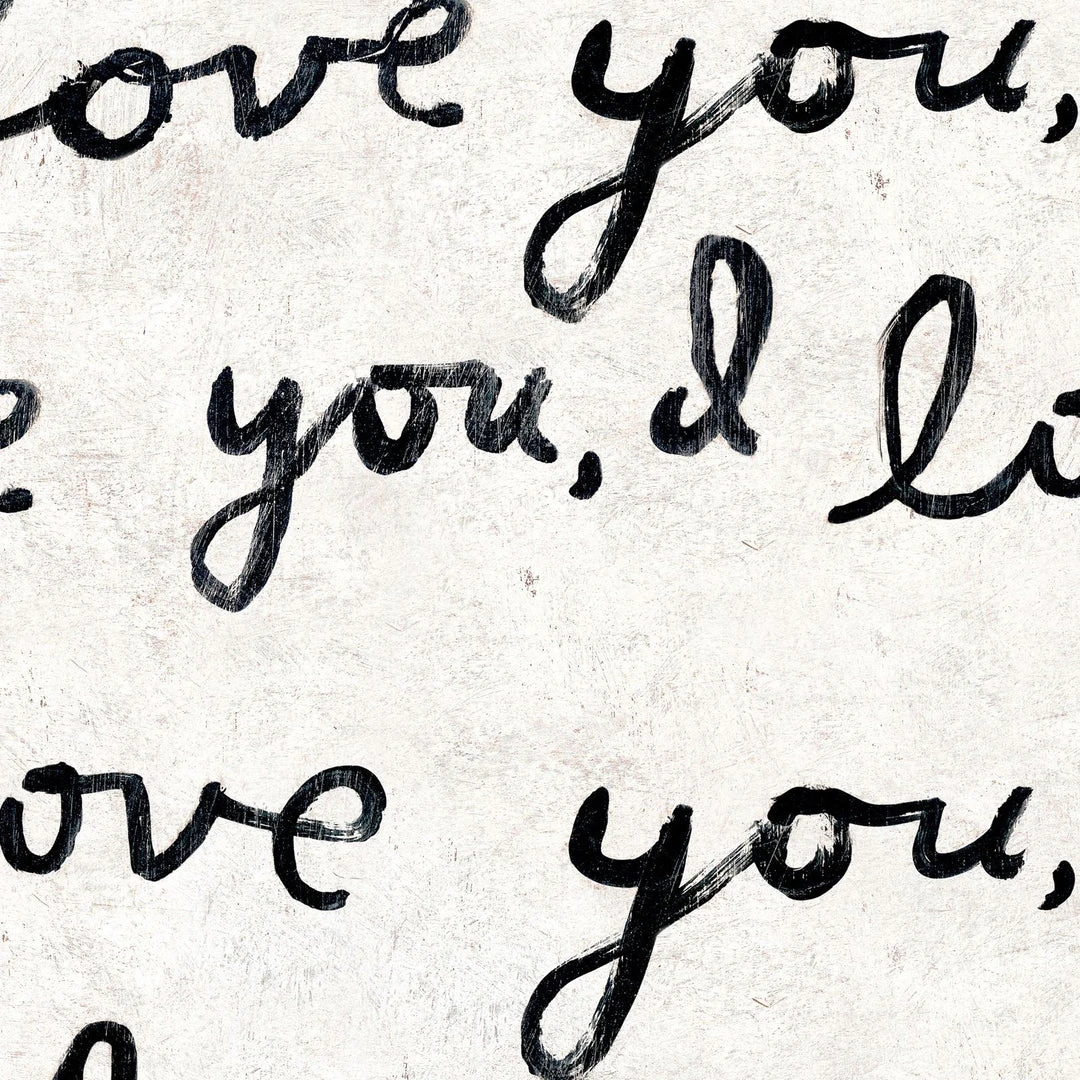 love you,
e you, I lo
ove you,